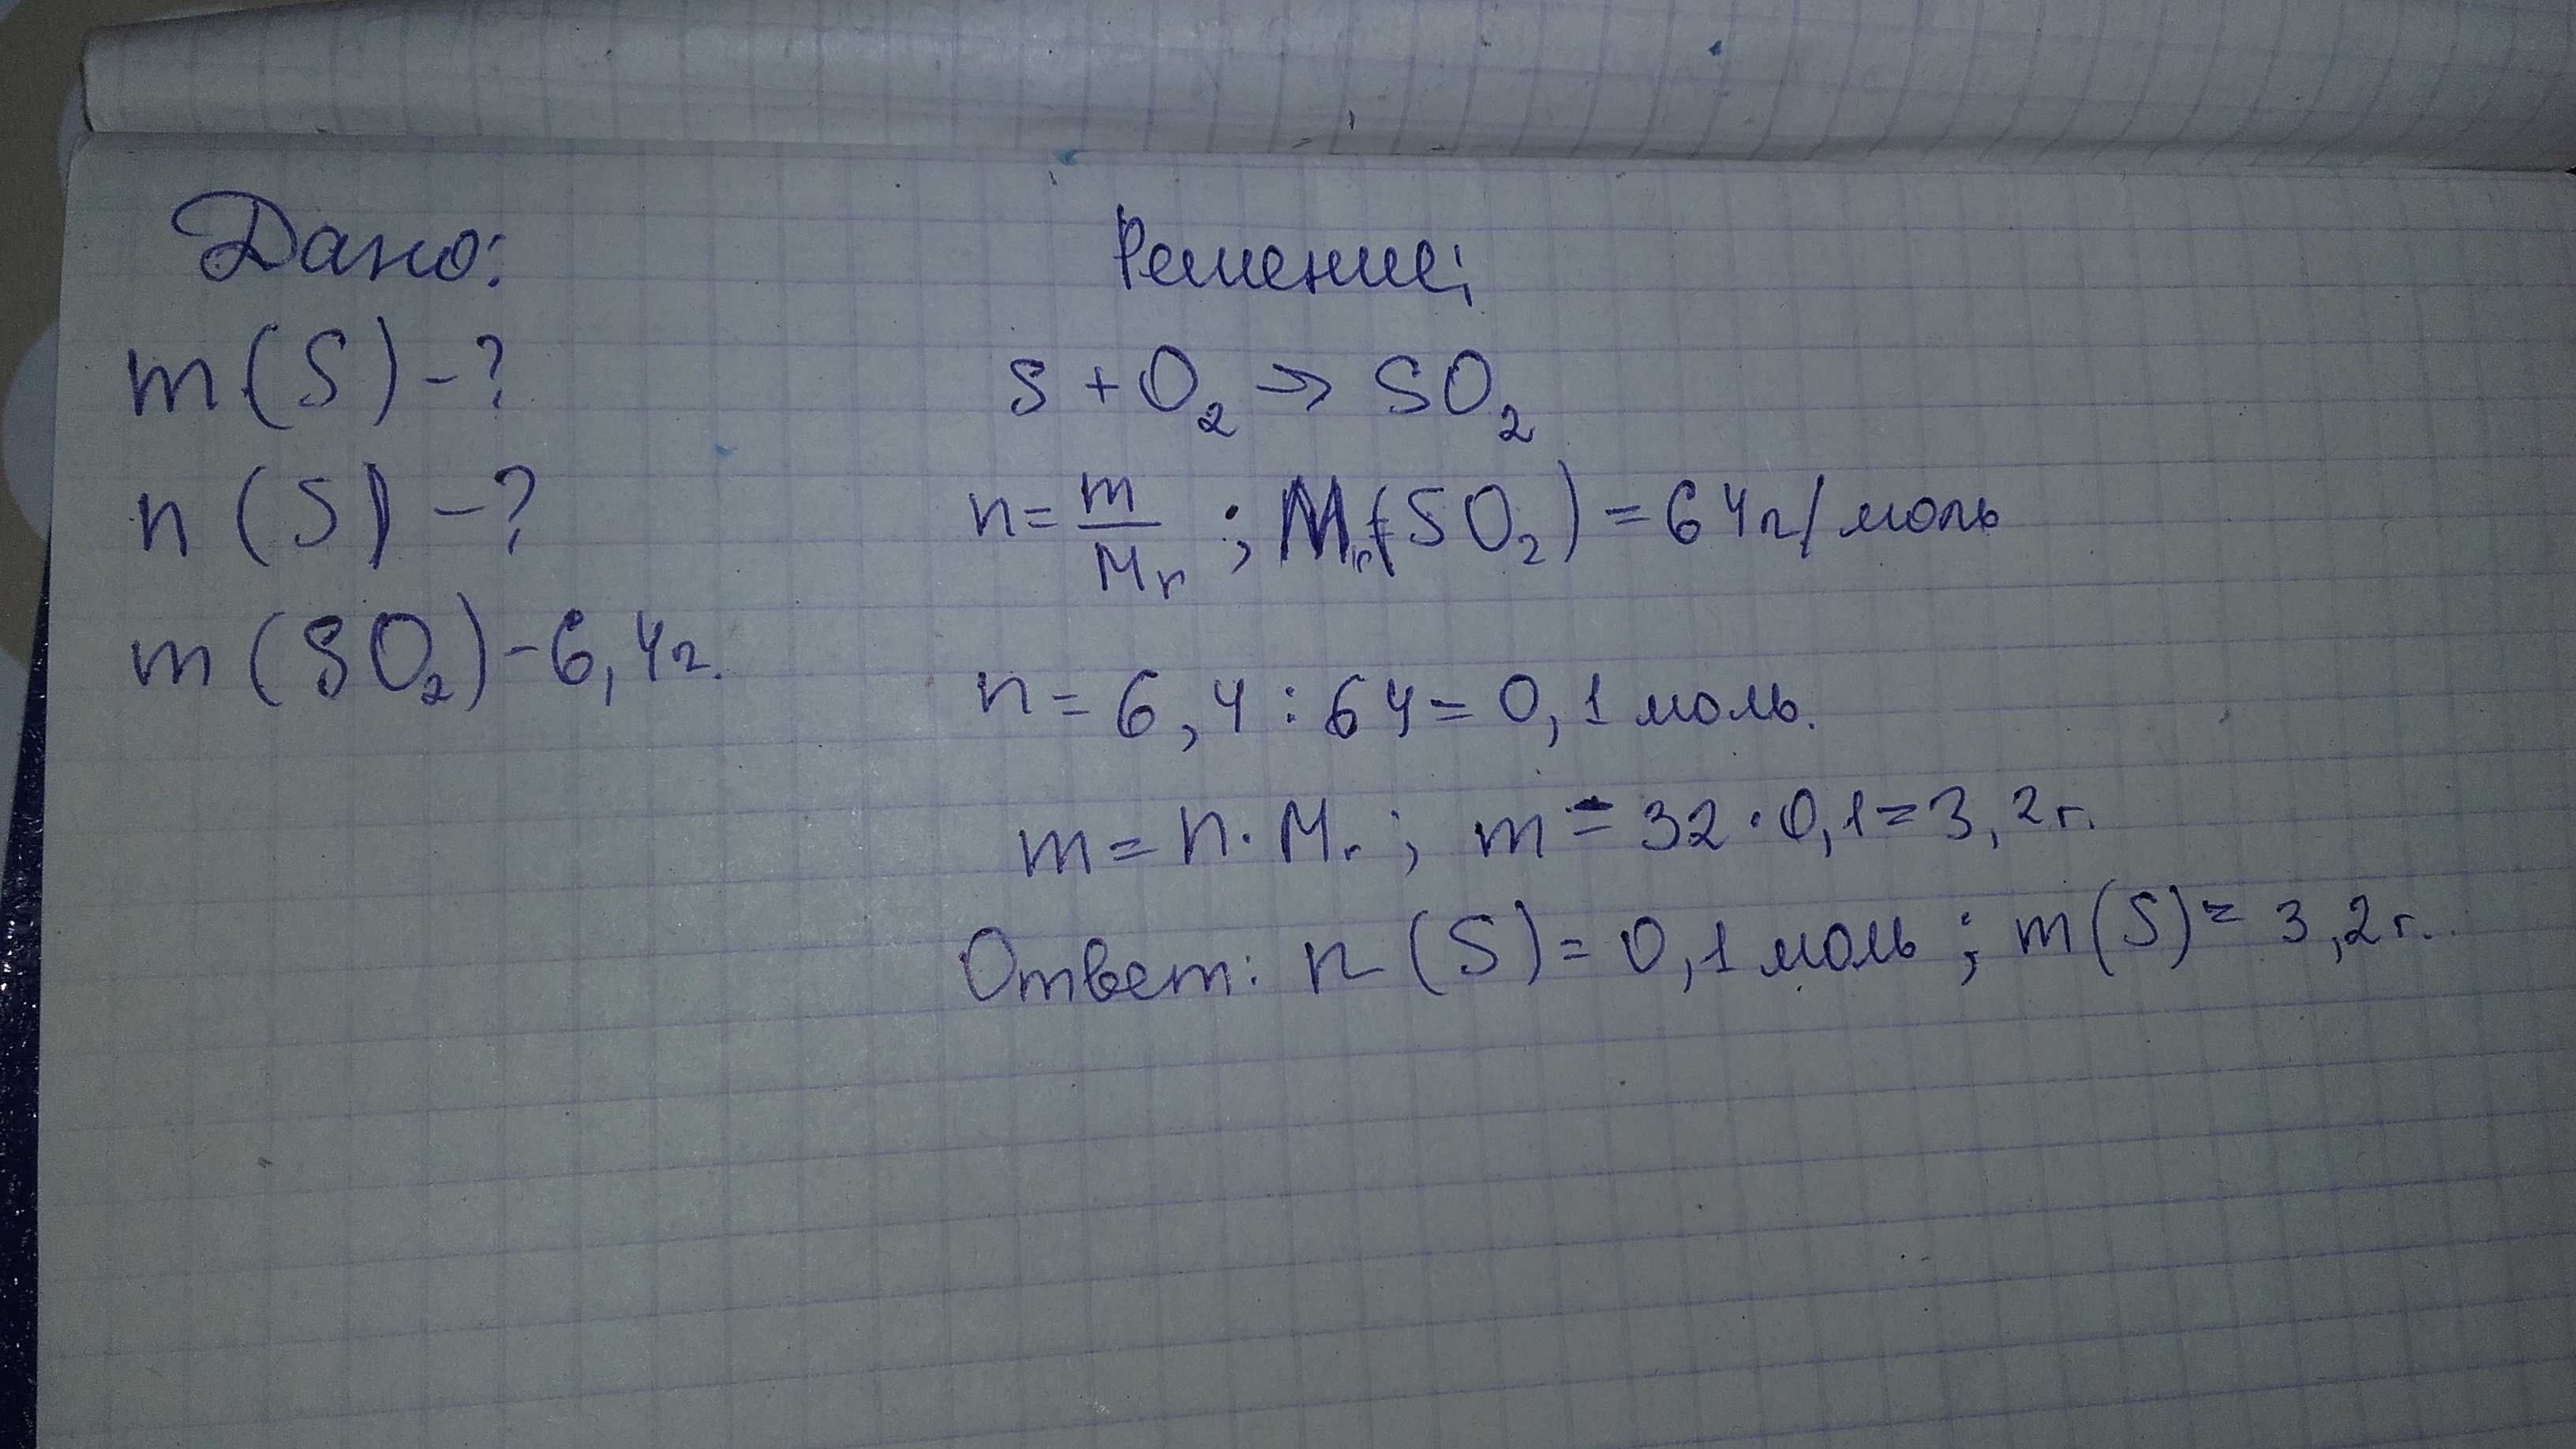 Дано:
m(S)-?
n(S)-?
m(SO₂)-6,4г.
Решение;
S+O₂→SO₂
n=m/Mr; Mr(SO₂)=64г/моль
n=6,4:64=0,1моль.
m=n·Mr; m=32·0,1=3,2г.
Ответ: n(S)=0,1моль; m(S)=3,2г.